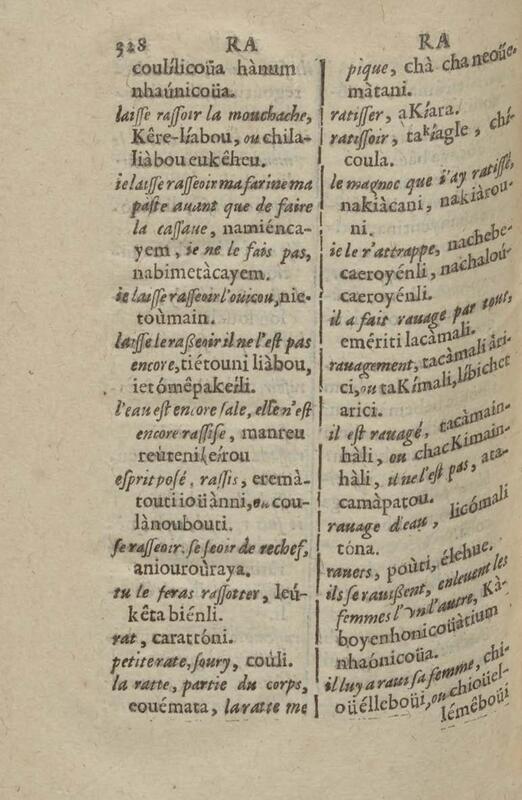 328 RA RA
coulílicoüa hànum
nhaúnicoüa.
laisse rassoir la mouchache,
Kêre-líabou, ou chila-
liàbou eukêheu.
ie laisse rasseoir ma farine ma
paste auant que de faire
la cassaue, namiénca-
yem, ie ne le fais pas,
nabimetàcayem.
ie laisse rasseoir l'oüicou, nie-
toùmain.
laisse le raßeoir il ne l'est pas
encore, tiétouni liàbou,
ietómêpakeíli.
l'eau est encore sale, elle n'est
encore rassise, manreu
reúteni eírou
esprit posé, rassis, eremà-
touti ioüànni, ou cou-
lànoubouti.
se rasseoir. se seoir de rechef,
aniouroùraya.
tu le feras rassotter, leú-
kêta biénli.
rat, carattóni.
petite rate, soury, coùli.
la ratte, partie du corps,
couémata, la ratte me
pique, chà chaneoüe-
màtani.
ratisser, aKíara.
ratissoir, takíagle, chí-
coula.
le magnoc que i'ay ratissé,
nakiàcani, nakiàrou-
ni.
ie le r'attrappe, nachebe-
caeroyénli, nachaloú-
caeroyénli.
il a fait rauage par tout,
emériti lacàmali.
rauagement, tacàmali àri-
ci, ou taKímali, líbichet
arici.
il est rauagé, tacàmain-
hàli, ou chacKimain-
hàli, il ne l'est pas, ata-
camàpatou.
rauage d'eau, licómali
tóna.
rauets, poùti, élehue.
ils se rauißent, enleuent les
femmes l'vn l'autre, Kà-
boyenhonicoüàtium
nhaónicoüa.
il luy a raui sa femme, chi-
oüélleboüi, ou chioüel-
lémêboüi